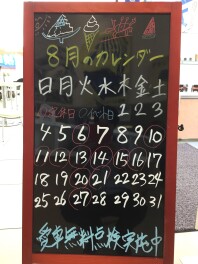 8月のカレンダー
日月火水木金土
定休日 1 2 3
4 5 6 7 8 9 10
11 12 13 14 15 16 17
18 19 20 21 22 23 24
25 26 27 28 29 30 31
無料点検実施中